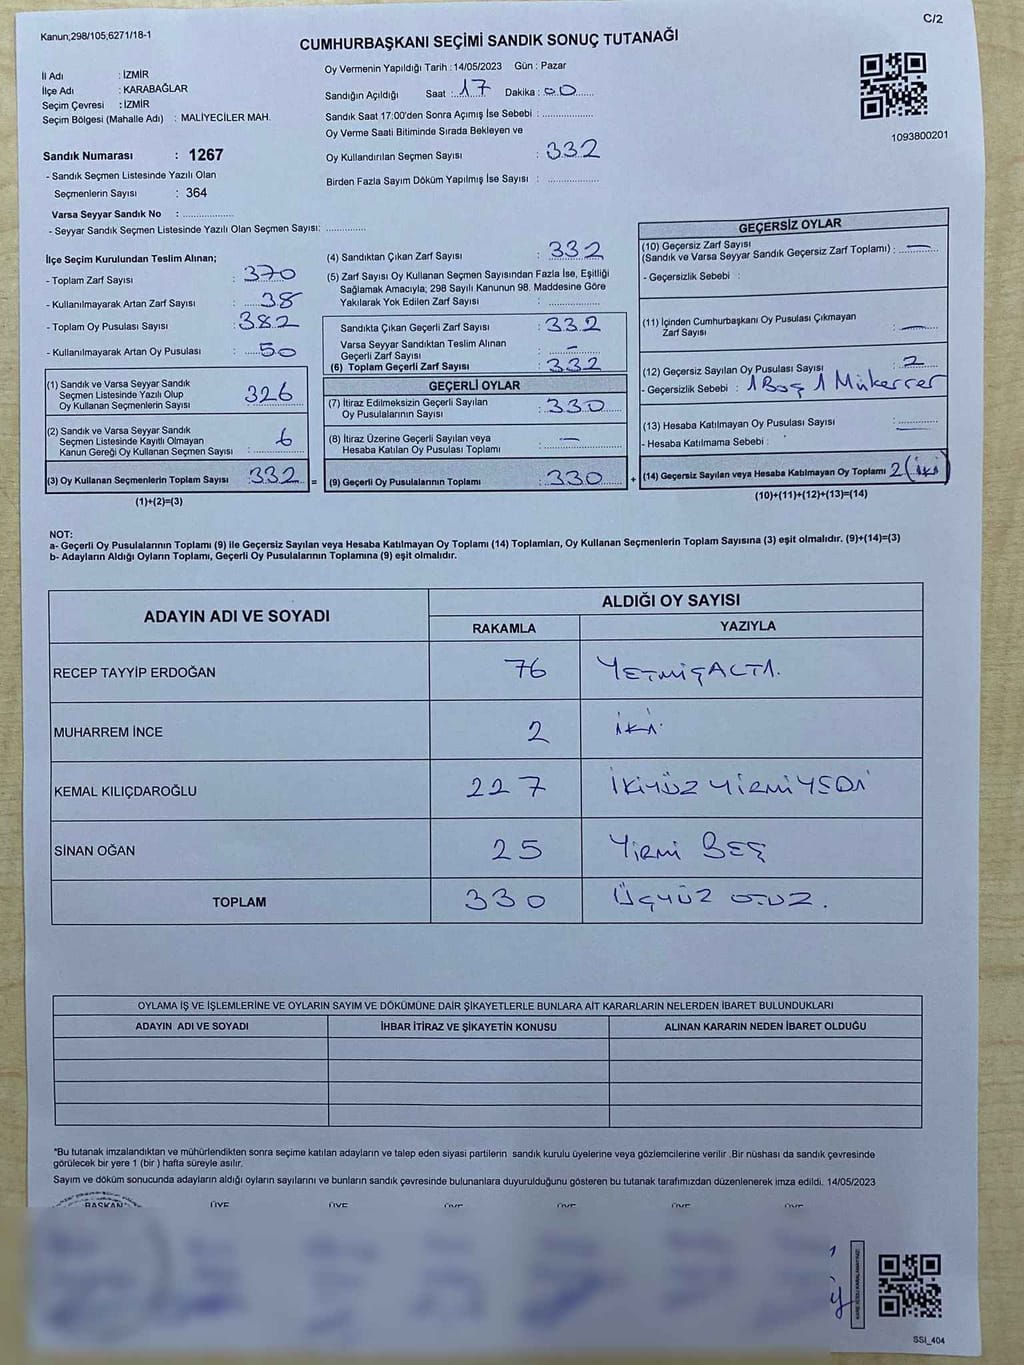 Kanun;298/105,6271/18-1
C/2
CUMHURBAŞKANI SEÇİMİ SANDIK SONUÇ TUTANAĞI
İl Adı : İZMİR
İlçe Adı : KARABAĞLAR
Seçim Çevresi : İZMİR
Seçim Bölgesi (Mahalle Adı) : MALİYECİLER MAH.
Sandık Numarası : 1267
- Sandık Seçmen Listesinde Yazılı Olan
Seçmenlerin Sayısı : 364
Varsa Seyyar Sandık No : ..................
- Seyyar Sandık Seçmen Listesinde Yazılı Olan Seçmen Sayısı: ..............
Oy Vermenin Yapıldığı Tarih :14/05/2023 Gün : Pazar
Sandığın Açıldığı Saat : 17 Dakika : 00
Sandık Saat 17:00'den Sonra Açımış İse Sebebi : ..................
Oy Verme Saati Bitiminde Sırada Bekleyen ve
Oy Kullandırılan Seçmen Sayısı : 332
Birden Fazla Sayım Döküm Yapılmış İse Sayısı : ..................
1093800201
İlçe Seçim Kurulundan Teslim Alınan;
- Toplam Zarf Sayısı : 370
- Kullanılmayarak Artan Zarf Sayısı : 38
- Toplam Oy Pusulası Sayısı : 382
- Kullanılmayarak Artan Oy Pusulası : 50
(1) Sandık ve Varsa Seyyar Sandık
Seçmen Listesinde Yazılı Olup
Oy Kullanan Seçmenlerin Sayısı : 326
(2) Sandık ve Varsa Seyyar Sandık
Seçmen Listesinde Kayıtlı Olmayan
Kanun Gereği Oy Kullanan Seçmen Sayısı : 6
(3) Oy Kullanan Seçmenlerin Toplam Sayısı : 332 =
(1)+(2)=(3)
(4) Sandıktan Çıkan Zarf Sayısı : 332
(5) Zarf Sayısı Oy Kullanan Seçmen Sayısından Fazla İse, Eşitliği
Sağlamak Amacıyla; 298 Sayılı Kanunun 98. Maddesine Göre
Yakılarak Yok Edilen Zarf Sayısı : ..............
Sandıkta Çıkan Geçerli Zarf Sayısı : 332
Varsa Seyyar Sandıktan Teslim Alınan
Geçerli Zarf Sayısı : -
(6) Toplam Geçerli Zarf Sayısı : 332
GEÇERLİ OYLAR
(7) İtiraz Edilmeksizin Geçerli Sayılan
Oy Pusulalarının Sayısı : 330
(8) İtiraz Üzerine Geçerli Sayılan veya
Hesaba Katılan Oy Pusulası Toplamı : -
(9) Geçerli Oy Pusulalarının Toplamı : 330 +
GEÇERSİZ OYLAR
(10) Geçersiz Zarf Sayısı
(Sandık ve Varsa Seyyar Sandık Geçersiz Zarf Toplamı) : -
- Geçersizlik Sebebi :
(11) İçinden Cumhurbaşkanı Oy Pusulası Çıkmayan
Zarf Sayısı : -
(12) Geçersiz Sayılan Oy Pusulası Sayısı : 2
- Geçersizlik Sebebi : 1 Boş 1 Mükerrer
(13) Hesaba Katılmayan Oy Pusulası Sayısı : -
- Hesaba Katılmama Sebebi :
(14) Geçersiz Sayılan veya Hesaba Katılmayan Oy Toplamı 2 (iki)
(10)+(11)+(12)+(13)=(14)
NOT:
a- Geçerli Oy Pusulalarının Toplamı (9) ile Geçersiz Sayılan veya Hesaba Katılmayan Oy Toplamı (14) Toplamları, Oy Kullanan Seçmenlerin Toplam Sayısına (3) eşit olmalıdır. (9)+(14)=(3)
b- Adayların Aldığı Oyların Toplamı, Geçerli Oy Pusulalarının Toplamına (9) eşit olmalıdır.
ADAYIN ADI VE SOYADI
ALDIĞI OY SAYISI
RAKAMLA YAZIYLA
RECEP TAYYİP ERDOĞAN 76 YETMİŞALTI.
MUHARREM İNCE 2 İKİ
KEMAL KILIÇDAROĞLU 227 İKİYÜZ YİRMİYEDİ
SİNAN OĞAN 25 YİRMİ BEŞ
TOPLAM 330 ÜÇYÜZ OTUZ.
OYLAMA İŞ VE İŞLEMLERİNE VE OYLARIN SAYIM VE DÖKÜMÜNE DAİR ŞİKAYETLERLE BUNLARA AİT KARARLARIN NELERDEN İBARET BULUNDUKLARI
ADAYIN ADI VE SOYADI İHBAR İTİRAZ VE ŞİKAYETİN KONUSU ALINAN KARARIN NEDEN İBARET OLDUĞU
*Bu tutanak imzalandıktan ve mühürlendikten sonra seçime katılan adayların ve talep eden siyasi partilerin sandık kurulu üyelerine veya gözlemcilerine verilir .Bir nüshası da sandık çevresinde
görülecek bir yere 1 (bir ) hafta süreyle asılır.
Sayım ve döküm sonucunda adayların aldığı oyların sayılarını ve bunların sandık çevresinde bulunanlara duyurulduğunu gösteren bu tutanak tarafımızdan düzenlenerek imza edildi. 14/05/2023
BAŞKAN ÜYE ÜYE ÜYE ÜYE ÜYE ÜYE
SSI_404